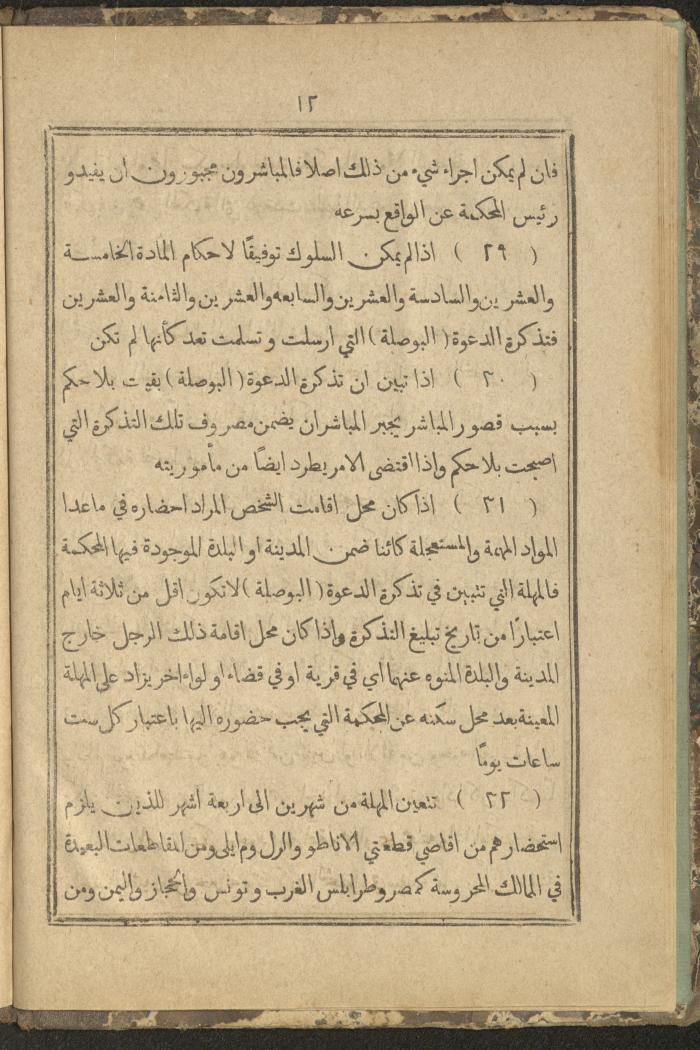 ١٢
فان لم يمكن اجراء شيء من ذلك اصلا فالمباشرون مجبورون ان يفيدو
رئيس المحكمة عن الواقع بسرعه
( ٢٩ ) اذالم يمكن السلوك توفيقًا لاحكام المادة الخامسة
والعشرين والسادسة والعشرين والسابعه والعشرين والثامنة والعشرين
فتذكرة الدعوة ( البوصلة ) التي ارسلت وتسلمت تعد كأنها لم تكن
( ٣٠ ) اذا تبين ان تذكرة الدعوة ( البوصلة ) بقيت بلا حكم
بسبب قصور المباشر يجبر المباشران يضمن مصروف تلك التذكرة التي
اصبحت بلا حكم واذا اقتضى الامر يطرد ايضًا من مأموريته
( ٣١ ) اذا كان محل اقامت الشخص المراد احضاره في ما عدا
المواد المهمة والمستعجلة كائنا ضمن المدينة او البلدة الموجودة فيها المحكمة
فالمهلة التي تتبين في تذكرة الدعوة ( البوصلة ) لا تكون اقل من ثلاثة ايام
اعتبارًا من تاريخ تبليغ التذكرة واذا كان محل اقامة ذلك الرجل خارج
المدينة والبلدة المنوه عنهما اي في قرية او في قضاء او لواء اخر يزاد على المهلة
المعينة بعد محل سكنه عن المحكمة التي يجب حضوره اليها باعتبار كل ست
ساعات يومًا
( ٣٢ ) تتعين المهلة من شهرين الى اربعة اشهر للذين يلزم
استحضارهم من اقاصي قطعتي الاناطو والرل وم ايلى ومن المقاطعات البعيدة
في الممالك المحروسة كمصر وطرابلس الغرب وتونس والحجاز واليمن ومن